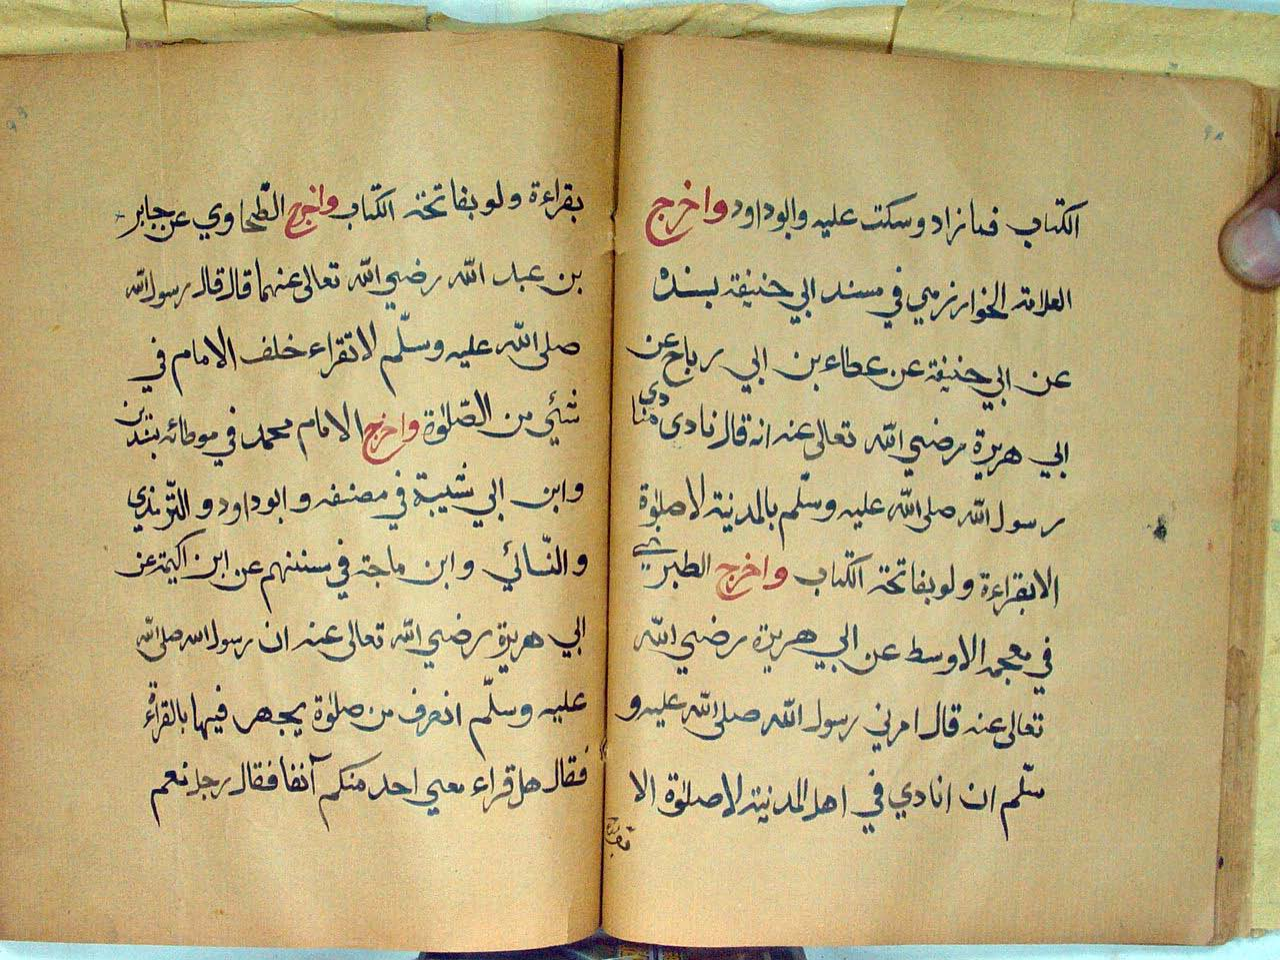 الكتاب فما زاد وسكت عليه وابوداود واخرج
العلامة الخوارزمي في مسند ابي حنيفة بسنده
عن ابي حنيفة عن عطاء بن ابي رباح عن
ابي هريرة رضي الله تعالى عنه انه قال نادى منادي
رسول الله صلى الله عليه وسلّم بالمدينة لا صلوة
الا بقراءة ولو بفاتحة الكتاب واخرج الطبراني
في معجمه الاوسط عن ابي هريرة رضي الله
تعالى عنه قال امرني رسول الله صلى الله عليه و
سلّم ان انادي في اهل المدينة لا صلوة الا
بقراءة
بقراءة ولو بفاتحة الكتاب واخرج الطّحاوي عن جابر
بن عبد الله رضي الله تعالى عنهما قال قال رسول الله
صلى الله عليه وسلّم لا تقراء خلف الامام في
شئي من الصّلوة واخرج الامام محمد في موطائه بسندين
وابن ابي شيبة في مصنفه وابوداود والتّرمذي
والنّسائي وابن ماجة في سننهم عن ابن اكيمة عن
ابي هريرة رضي الله تعالى عنه ان رسول الله صلى الله
عليه وسلّم انصرف من صلوة يجهر فيها بالقراءة
فقال هل قراء معي احد منكم آنفا فقال رجل نعم